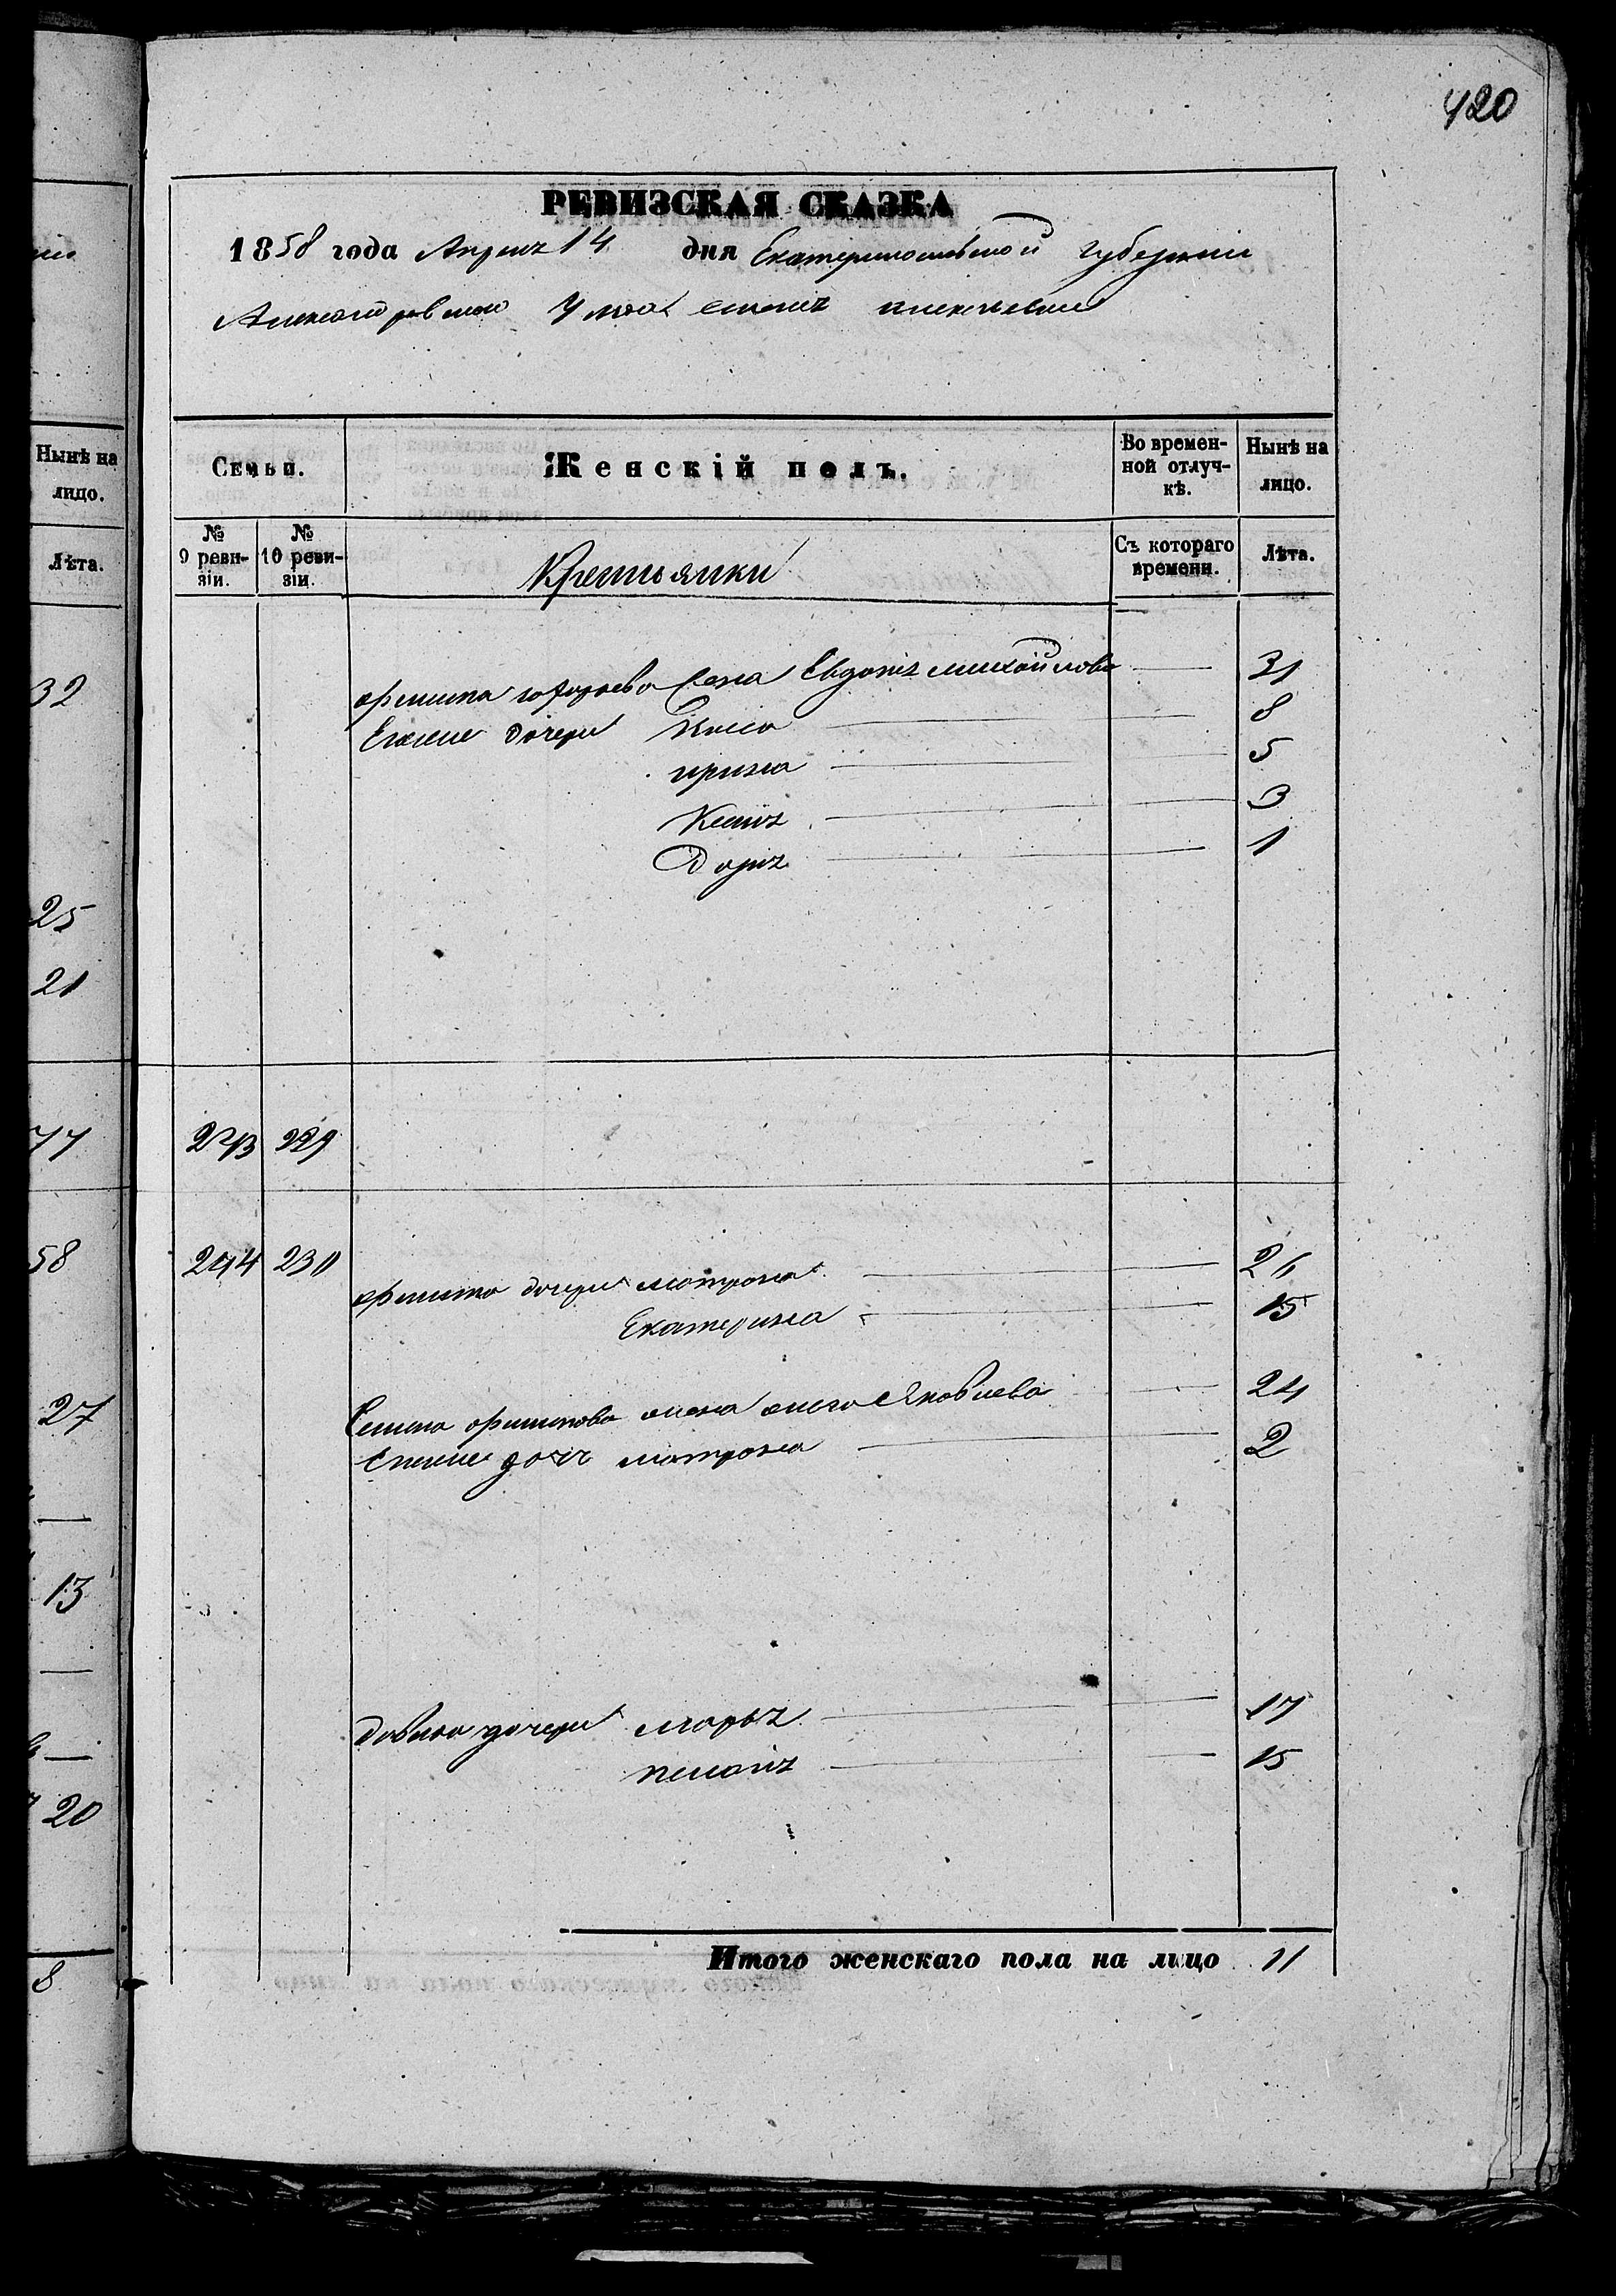 420
РЕВИЗСКАЯ СКАЗКА
1858 года Апреля 14 дня Екатеринославской губернии
Александровскаго уезда
Семьи.
Женскій полъ.
Во времен-
ной отлуч-
кѣ.
Нынѣ на
лицо.
№
9 реви-
зіи.
№
10 реви-
зіи.
Крестьянки
Съ котораго
времени.
Лѣта.
Нынѣ на
лицо.
Лѣта.
жена Евдокия Михайлова 31
Его же дочери 8
Ирина 5
Ксения 3
Дария 1
243 229
244 230
дочери Матрона 26
Екатерина 15
жена Анна Яковлева 24
Его же дочь Матрона 2
дочери Марья 17
Пелагия 15
Итого женскаго пола на лицо 11
32
25
21
77
58
27
13
20
8